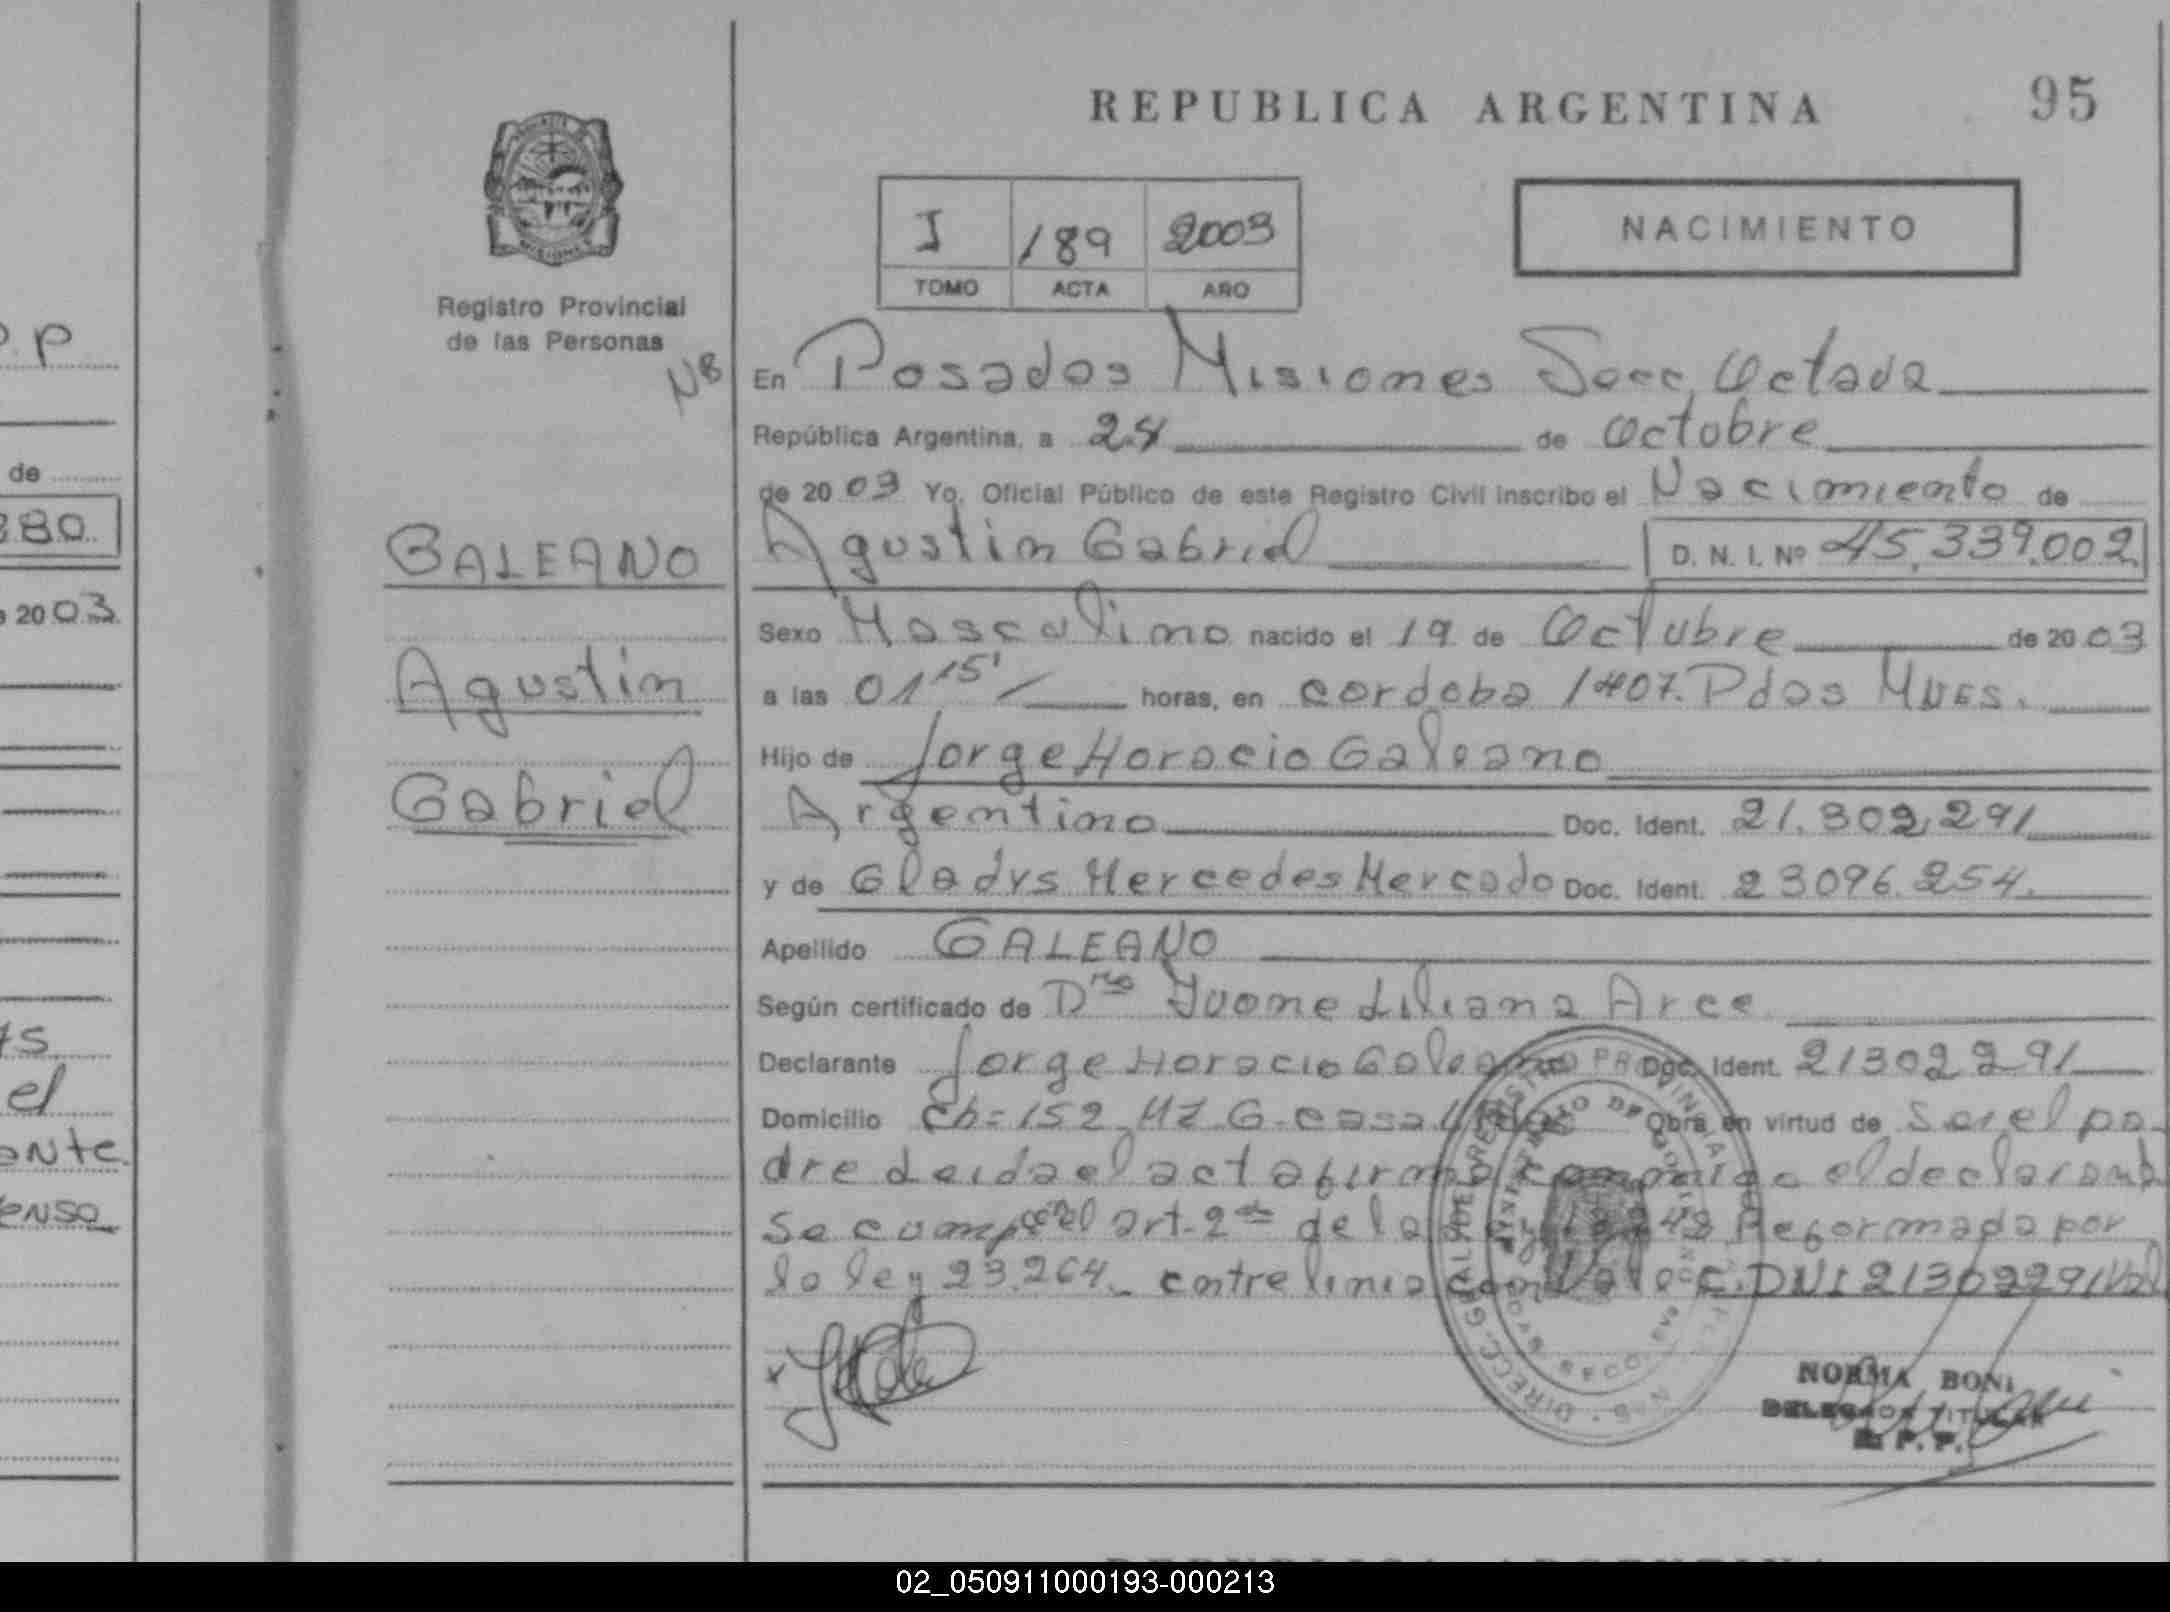 REPUBLICA ARGENTINA
95
I /89 2003
TOMO ACTA AÑO
NACIMIENTO
Registro Provincial
de las Personas
En Posadas Misiones Secc, Octava
República Argentina, a 24 de Octobre
de 20 03 Yo, Oficial Público de este Registro Civil inscribo el Nacimiento de
GALEANO
Agustin
Gabriel
Agustin Gabriel D. N. I. Nº 45,339.002
Sexo Mascolino nacido el 19 de Octubre de 20 03
a las 01 15' horas, en cordoba 1407. Pdas Mnes.
Hijo de Jorge Horacio Galeano
Argentino Doc. Ident. 21.302,291
y de Gladys Mercedes Mercado Doc. Ident. 23096.254.
Apellido GALEANO
Según certificado de Dra Ivone Liliana Arce
Declarante Jorge Horacio Galeano Doc. Ident. 21302291
Domicilio Ch=152 MZ.G-casa Obra en virtud de Ser el pa-
dre Leida el acta firma conmigo el declarante
Se cumple con el art. 2 de la Reformada por
la ley 23.264. entre linia DNI 21302291 Val
NORMA BONI
DELEGADO TITULAR
R. P. P.
P
de
880
20 03
el
ante
ensa
02_050911000193-000213